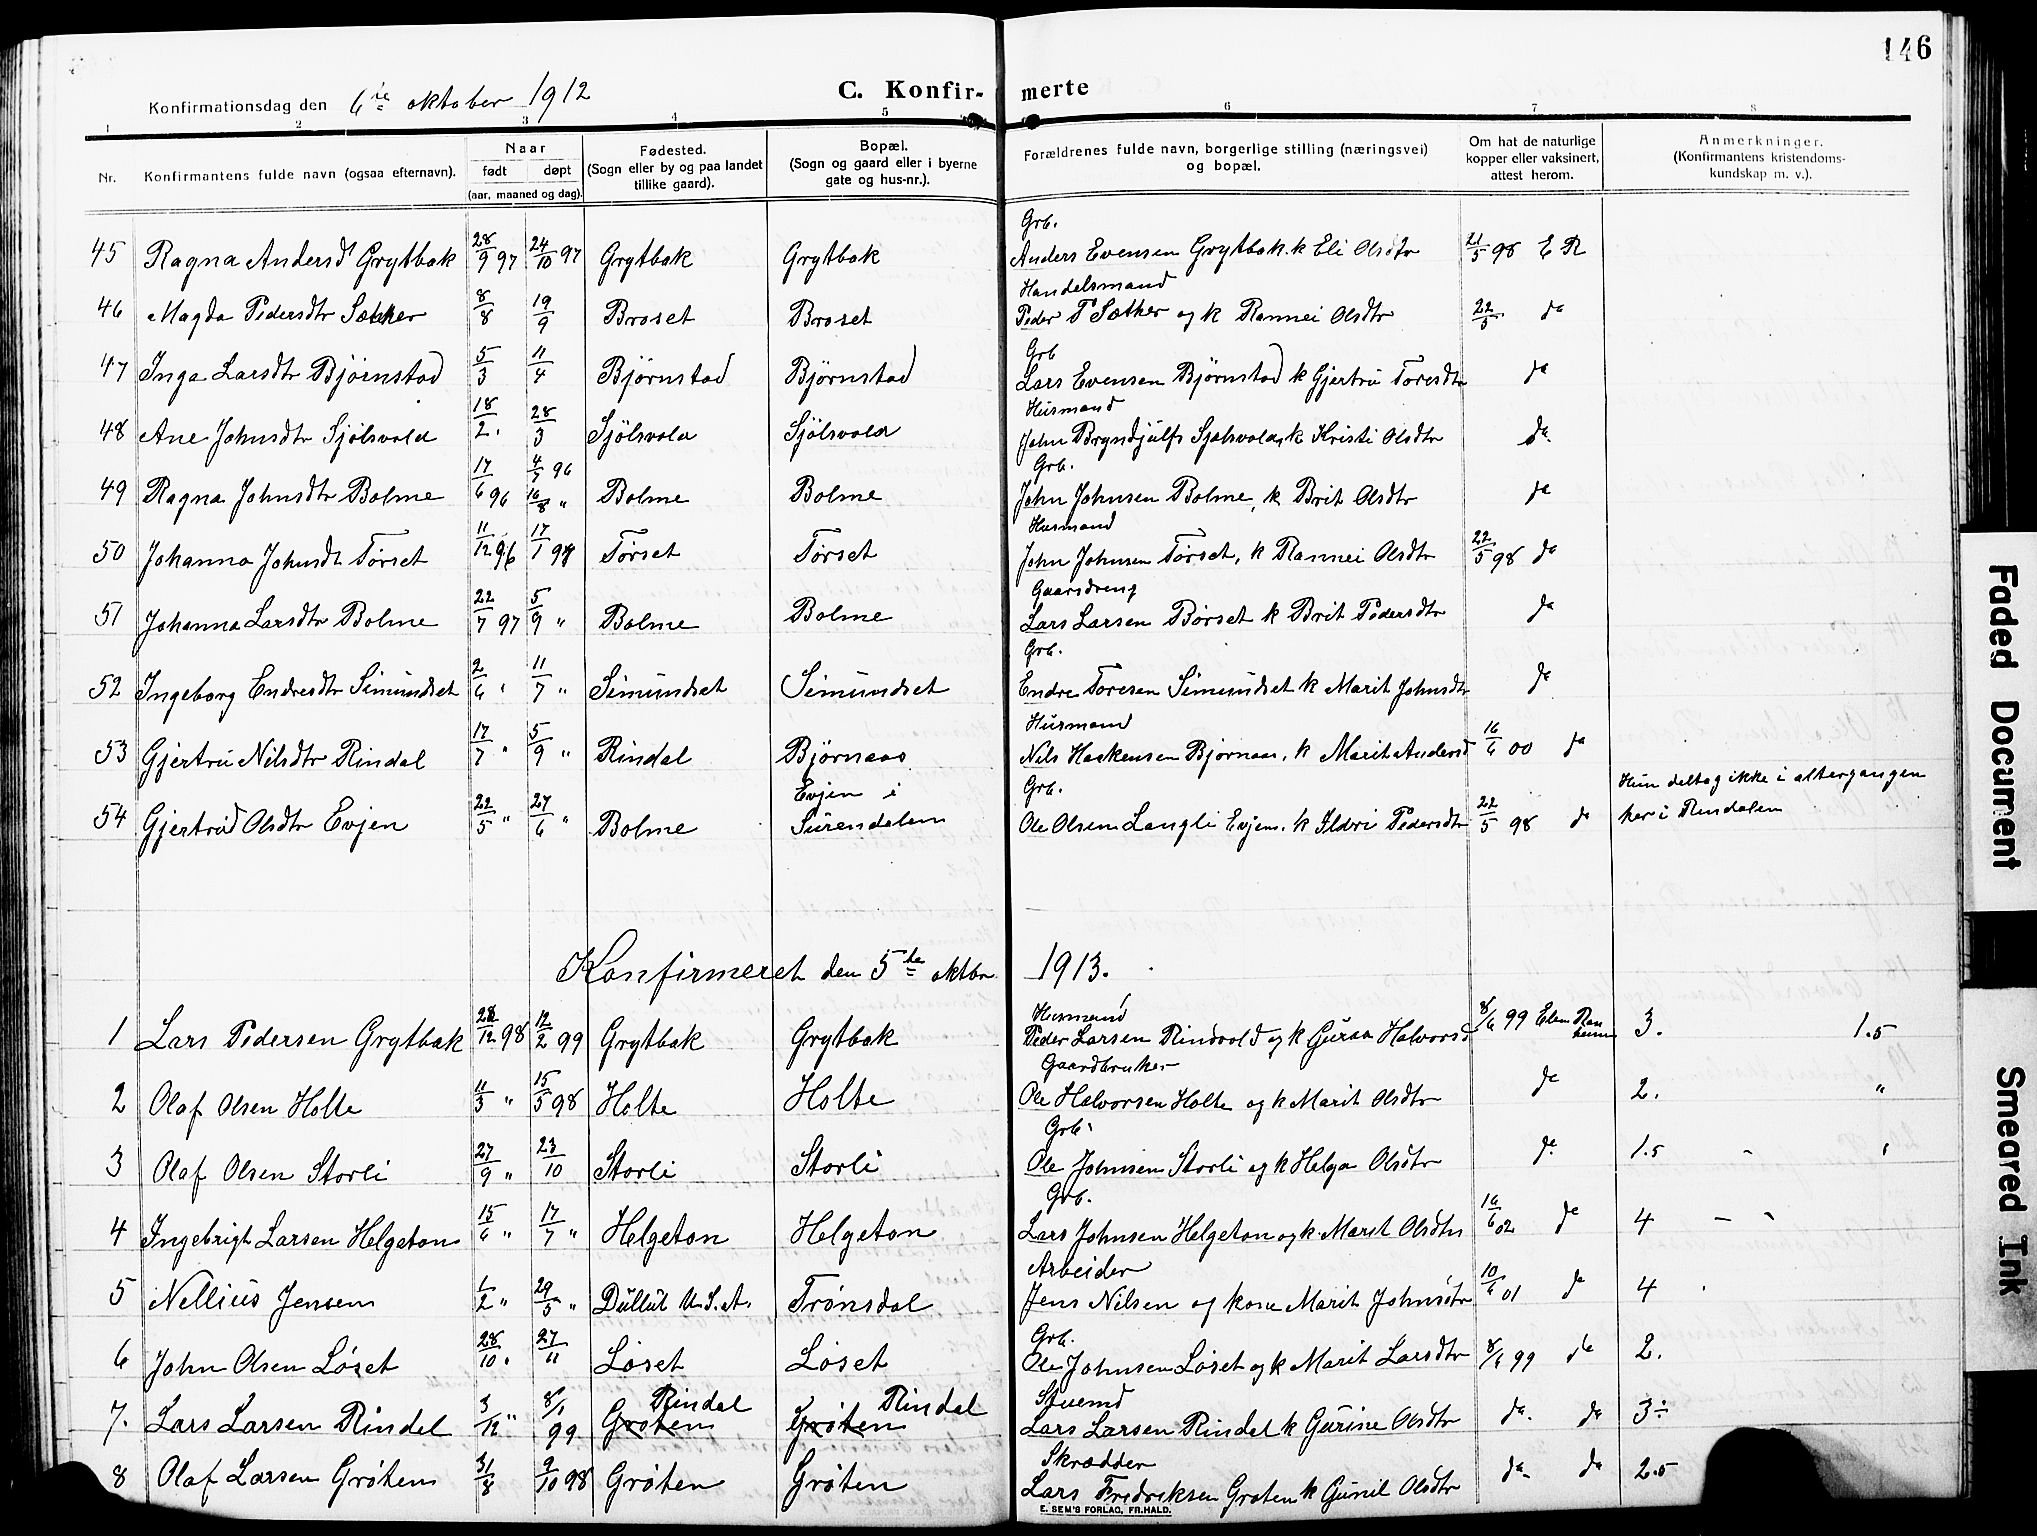 146
Konfirmationsdag den 6te oktober 1912
C. Konfir- merte
1 2 3 4 5 6 7 8
Nr. Konfirmantens fulde navn (ogsaa efternavn). Naar født døpt (aar, maaned og dag). Fødested. (Sogn eller by og paa landet tillike gaard). Bopæl. (Sogn og gaard eller i byerne gate og hus-nr.). Forældrenes fulde navn, borgerlige stilling (næringsvei) og bopæl. Om hat de naturlige kopper eller vaksinert, attest herom. Anmerkninger. (Konfirmantens kristendoms- kundskap m. v.).
Grb.
45 Ragna Andersd Grytbak 28/9 97 24/10 97 Grytbak Grytbak Anders Evensen Grytbak. k Eli Olsdtr 21/5 98 E R
Handelsmand
46 Magda Pedersdtr Sæther 8/8 19/9 Broset Broset Peder P Sæther og k Rannei Olsdtr 22/5 do
Grb
47 Inga Larsdtr Bjørnstad 5/3 11/4 Bjørnstad Bjørnstad Lars Evensen Bjørnstad k Gjertru Toresdtr do
Husmand
48 Ane Johnsdtr Sjølsvold 18/2. 28/3 Sjølsvold Sjølsvold John Bryndjulfs Sjølsvold, k Kristi Olsdtr do
Grb.
49 Ragna Johnsdtr Bolme 17/6 96 4/7 96 16/8 " Bolme Bolme John Johnsen Bolme, k Brit Olsdtr do
Husmand
50 Johanna Johnsdt Tørset 11/12 96 17/1 97 Tørset Tørset John Johnsen Tørset, k Rannei Olsdtr 22/5 98 do
Gaardreng
51 Johanna Larsdtr Bolme 22/7 97 5/9 " Bolme Bolme Lars Larsen Børset k Brit Pedersdtr do
Grb.
52 Ingeborg Endresdtr Simundset 2/6 " 11/7 " Simundset Simundset Endre Toresen Simundset k Marit Johnsdtr do
Husmand
53 Gjertru Nilsdtr Rindal 17/7 " 5/9 " Rindal Bjørnaas Nils Haakensen Bjørnaas, k Marit Andersd 16/6 00 do
Grb.
54 Gjertrud Olsdtr Evjen 22/5 " 27/6 " Bolme Evjen i Surendalen Ole Olsen Langli Evjen, k Ildri Pedersdtr 22/5 98 do Hun deltog ikke i altergangen her i Rindalen
Konfirmeret den 5te oktbr 1913.
Husmand
1 Lars Pedersen Grytbak 28/12 98 12/2 99 Grytbak Grytbak Peder Larsen Rindvold og k Guraa Halvorsd 8/6 99 3. 1.5
Gaardbruker
2 Olaf Olsen Holte 11/3 " 15/5 98 Holte Holte Ole Halvorsen Holte og k Marit Olsdtr do 2. "
Grb.
3 Olaf Olsen Storli 27/9 " 23/10 Storli Storli Ole Johnsen Storli og k Helga Olsdtr do 1.5
Grb.
4 Ingebrigt Larsen Helgeton 15/6 " 17/7 " Helgeton Helgeton Lars Johnsen Helgeton og k. Marit Olsdtr 16/6 02 do 4
Arbeider
5 Nellius Jensen 1/2 " 29/5 " Dullut U. S. A. Trønsdal Jens Nilsen og kone Marit Johnsdtr 10/6 01 do 4
Grb.
6 John Olsen Løset 28/10 " 27/11 Løset Løset Ole Johnsen Løset og k Marit Larsdtr 8/6 99 do 2.
Stuemd
7. Lars Larsen Rindal 3/12 " 8/1 99 Grøten Rindal Grøten Rindal Lars Larsen Rindal k Gurine Olsdtr do. do 3÷
Skrædder
8 Olaf Larsen Grøten 31/8 9/10 98 Grøten Grøten Lars Fredriksen Grøten k Gunil Olsdtr do- do 2.5
E. SEM'S FORLAG, FR.HALD.
Faded Document
Smeared Ink